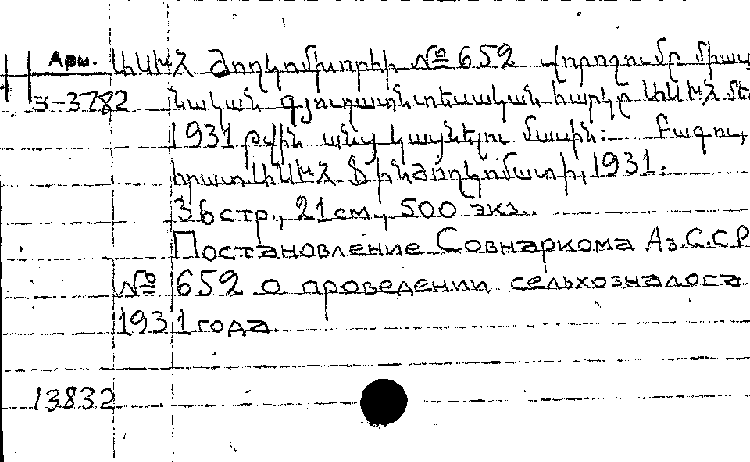 Арм. ԱԽՍՀ Ժողկոմխորհի № 652 վորոշումը միաս
З-3782 նական գյուղատնտեսական հարկը ԱԽՍՀ մե
1931 թվին անց կացնելու մասին: Բագու,
հրատ. 1931.
36 стр., 21 см., 500 экз.
Постановление Совнаркома Аз.С.С.Р
№ 652 о проведении сельхозналога
1931 года
13832